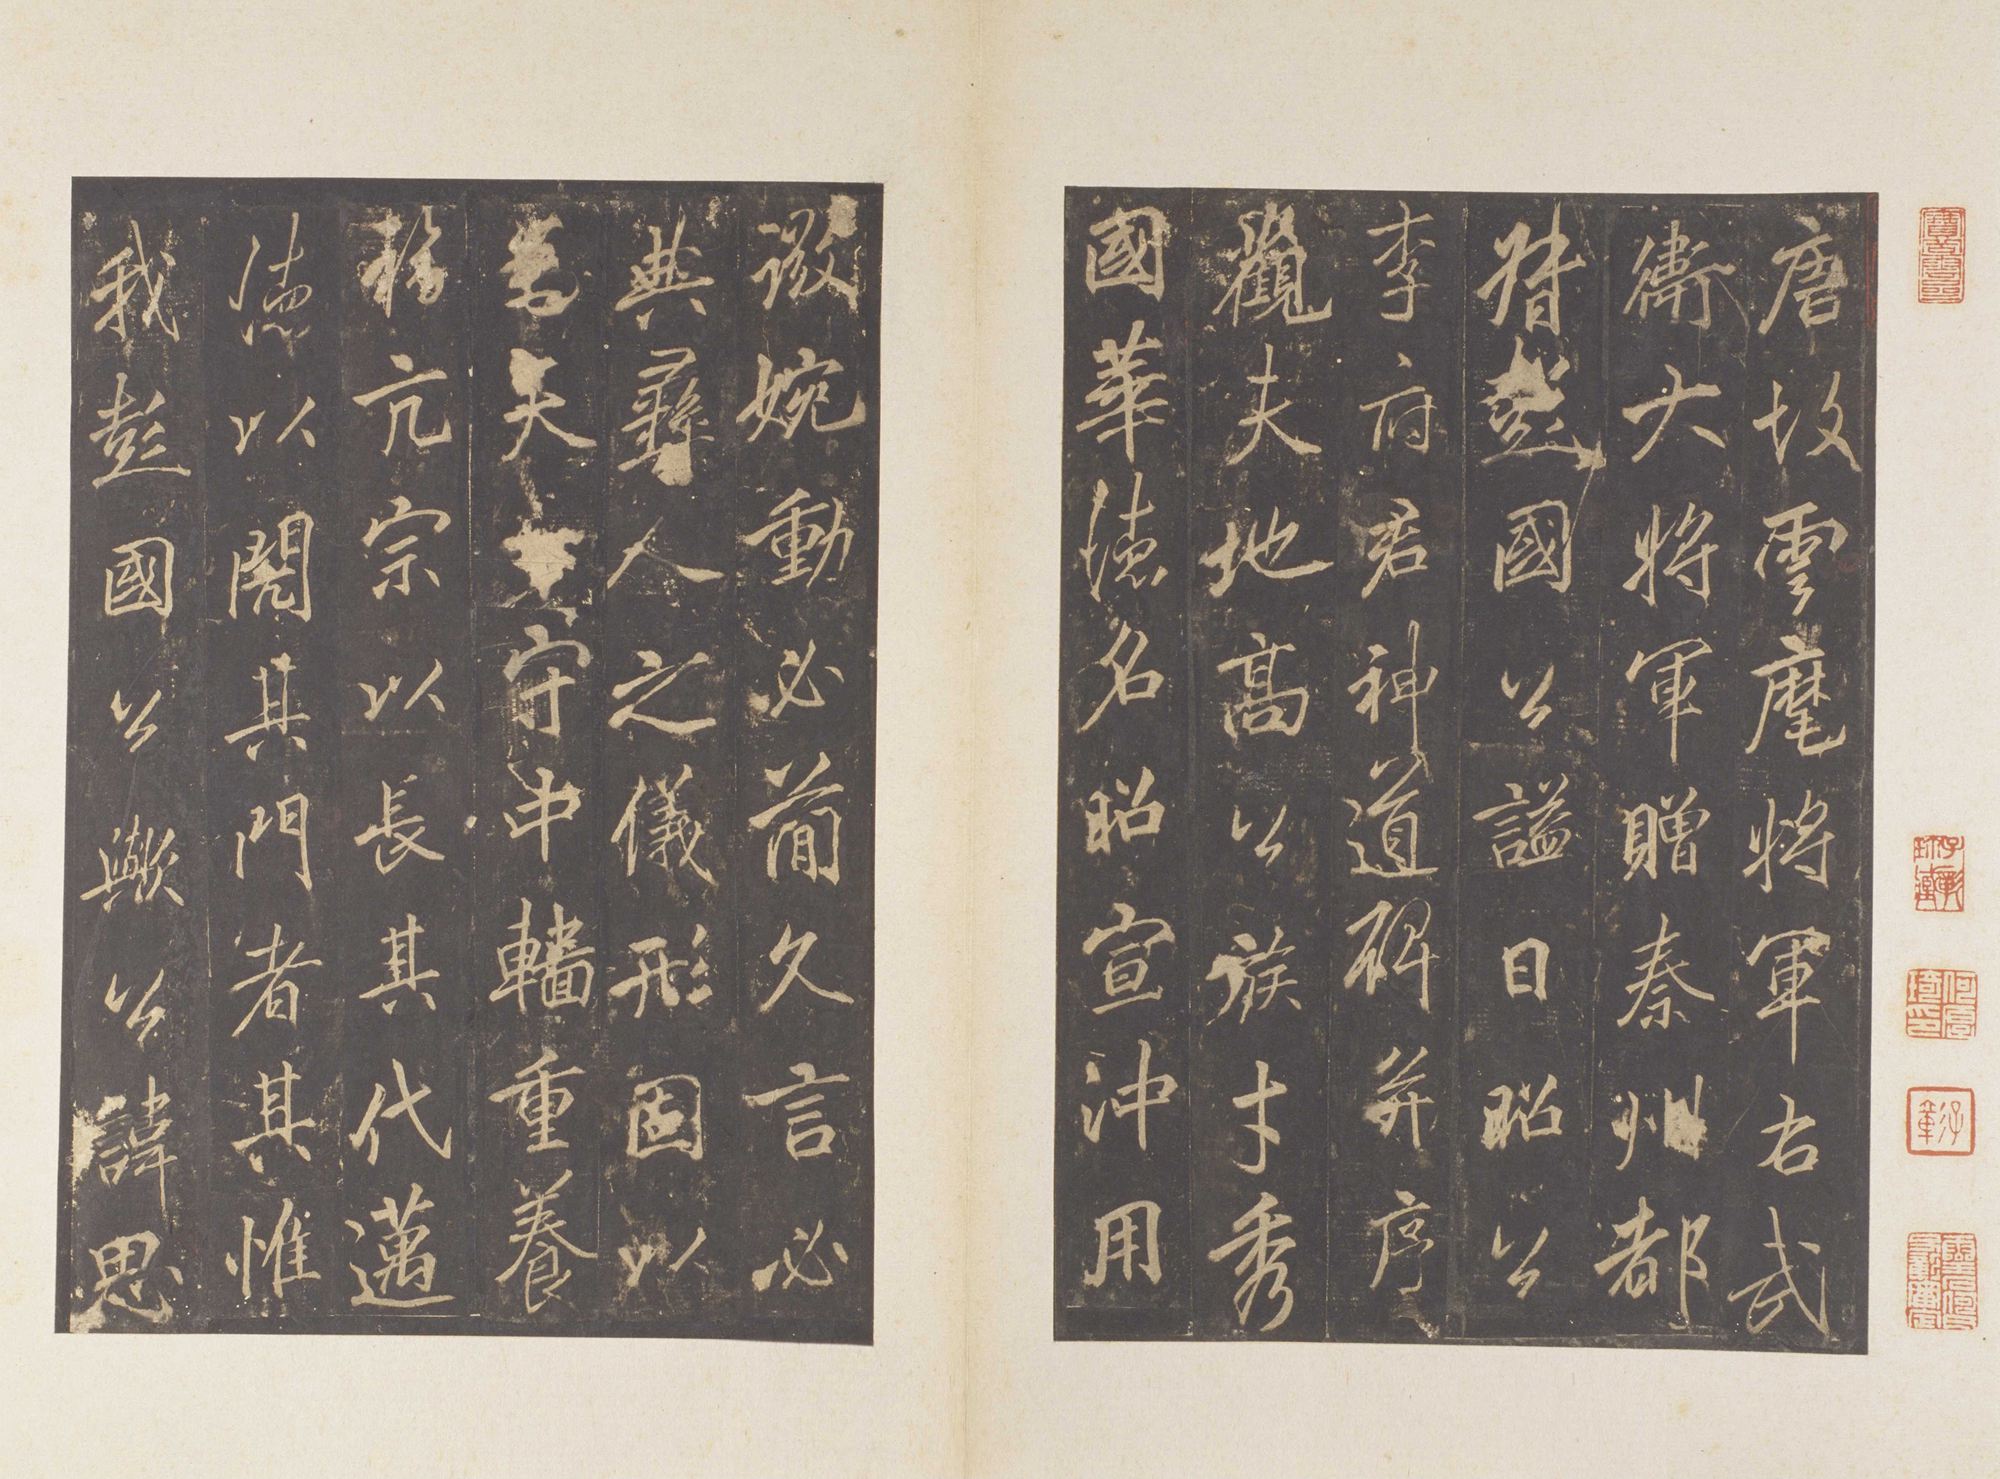 唐故雲麾將軍右武
衛大將軍贈秦州都
督彭國公謚曰昭公
李府君神道碑并序
觀夫地高公族才秀
國華德名昭宣沖用
微婉動必簡久言必
典彝人之儀形固以
為矢守中轓重養
務亢宗以長其代邁
德以閎其門者其惟
我彭國公歟公諱思